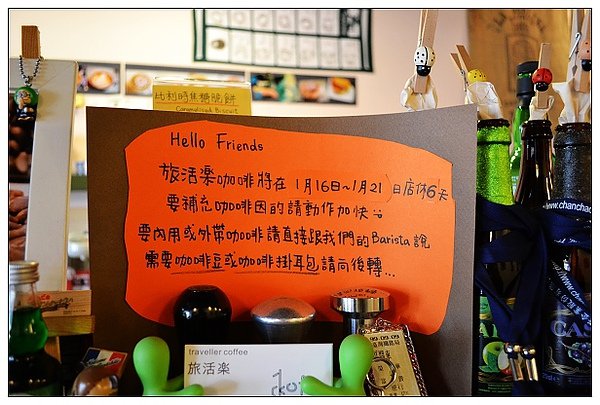 比利時焦糖脆餅
Caramelised Biscuit
Hello Friends
旅活楽咖啡將在 1月16日~1月21日店休6天
要補充咖啡因的請動作加快
要內用或外帶咖啡請直接跟我們的Barista說
需要咖啡豆或咖啡掛耳包請向後轉...
traveller coffee
旅活楽
99.09.09
www.chancha